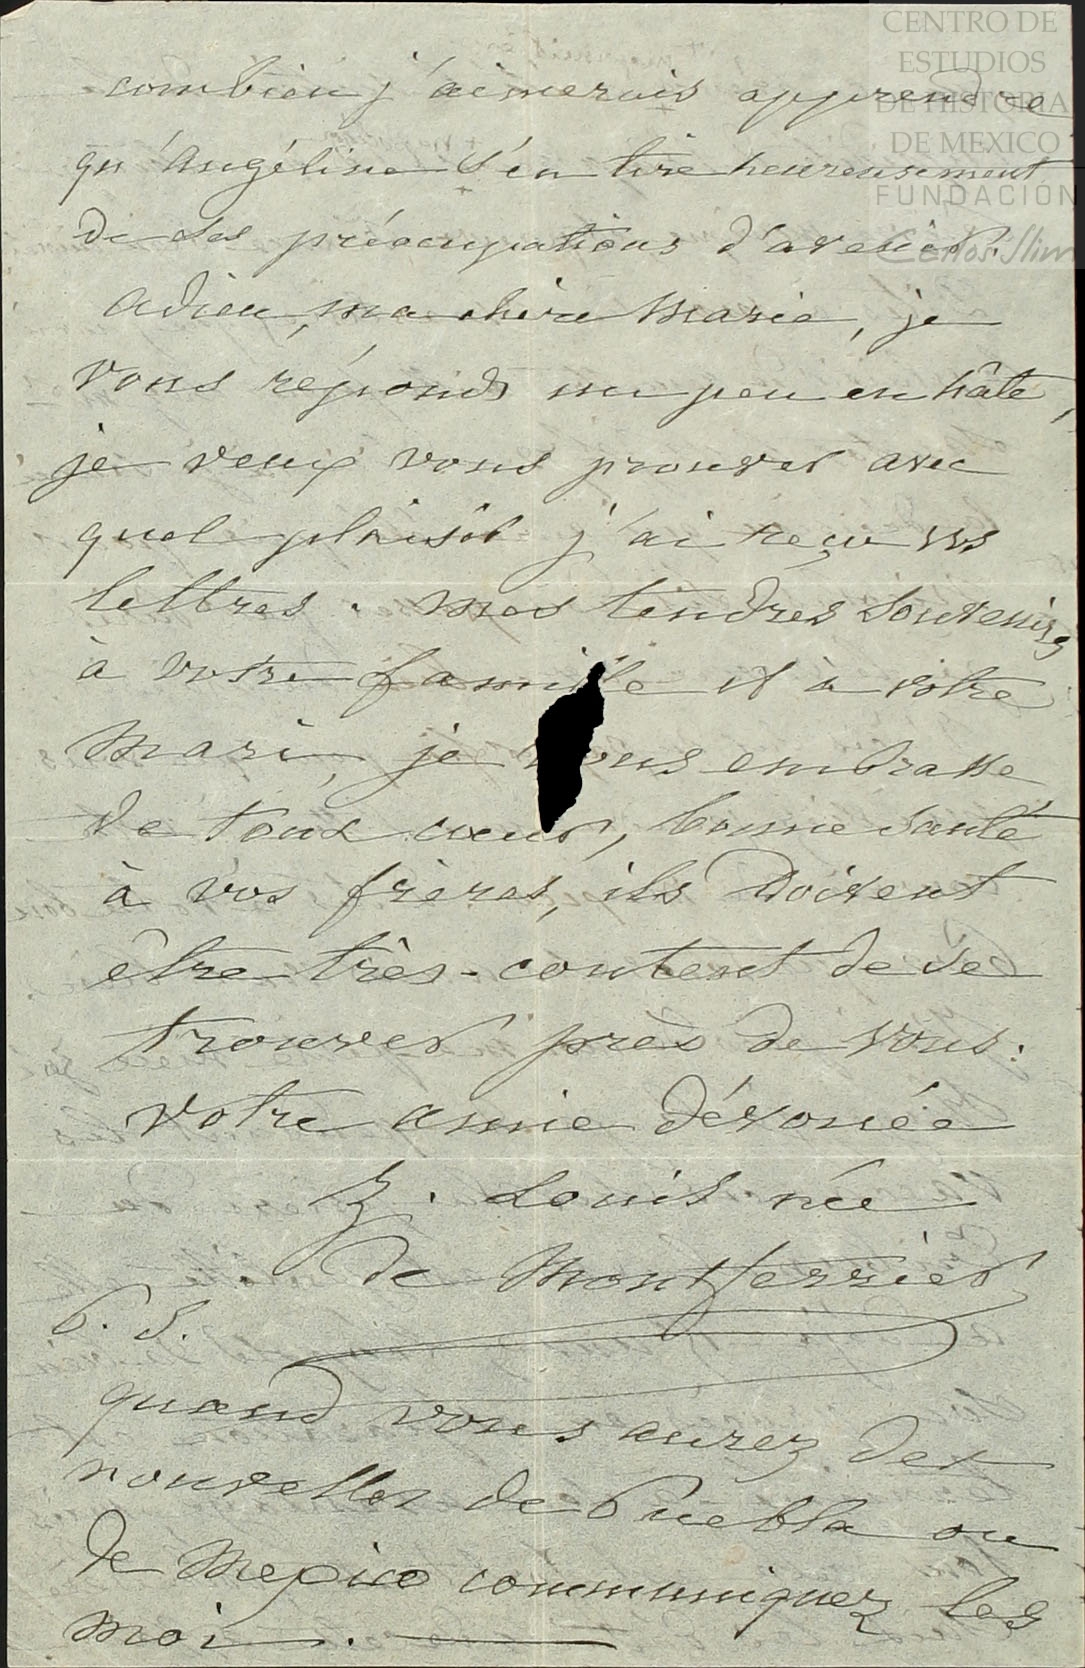 CENTRO DE
ESTUDIOS
DE HISTORIA
DE MEXICO
FUNDACIÓN
Carlos Slim
combien j'aimerais apprendre
qu'Angéline s'en tire heureusement
de ses préoccupations d'avenir.
Adieu, ma chère Marie, je
vous réponds un peu en hâte,
je veux vous prouver avec
quel plaisir j'ai reçu vos
lettres. mes tendres souvenirs
à votre famille et à votre
mari, je vous embrasse
de tout cœur, bonne santé
à vos frères, ils doivent
être très-content de se
trouver près de vous.
votre amie dévouée
Z. Louis née
de Montferrier
P. S.
quand vous aurez des
nouvelles de Puebla ou
de Mexico communiquez les
moi.